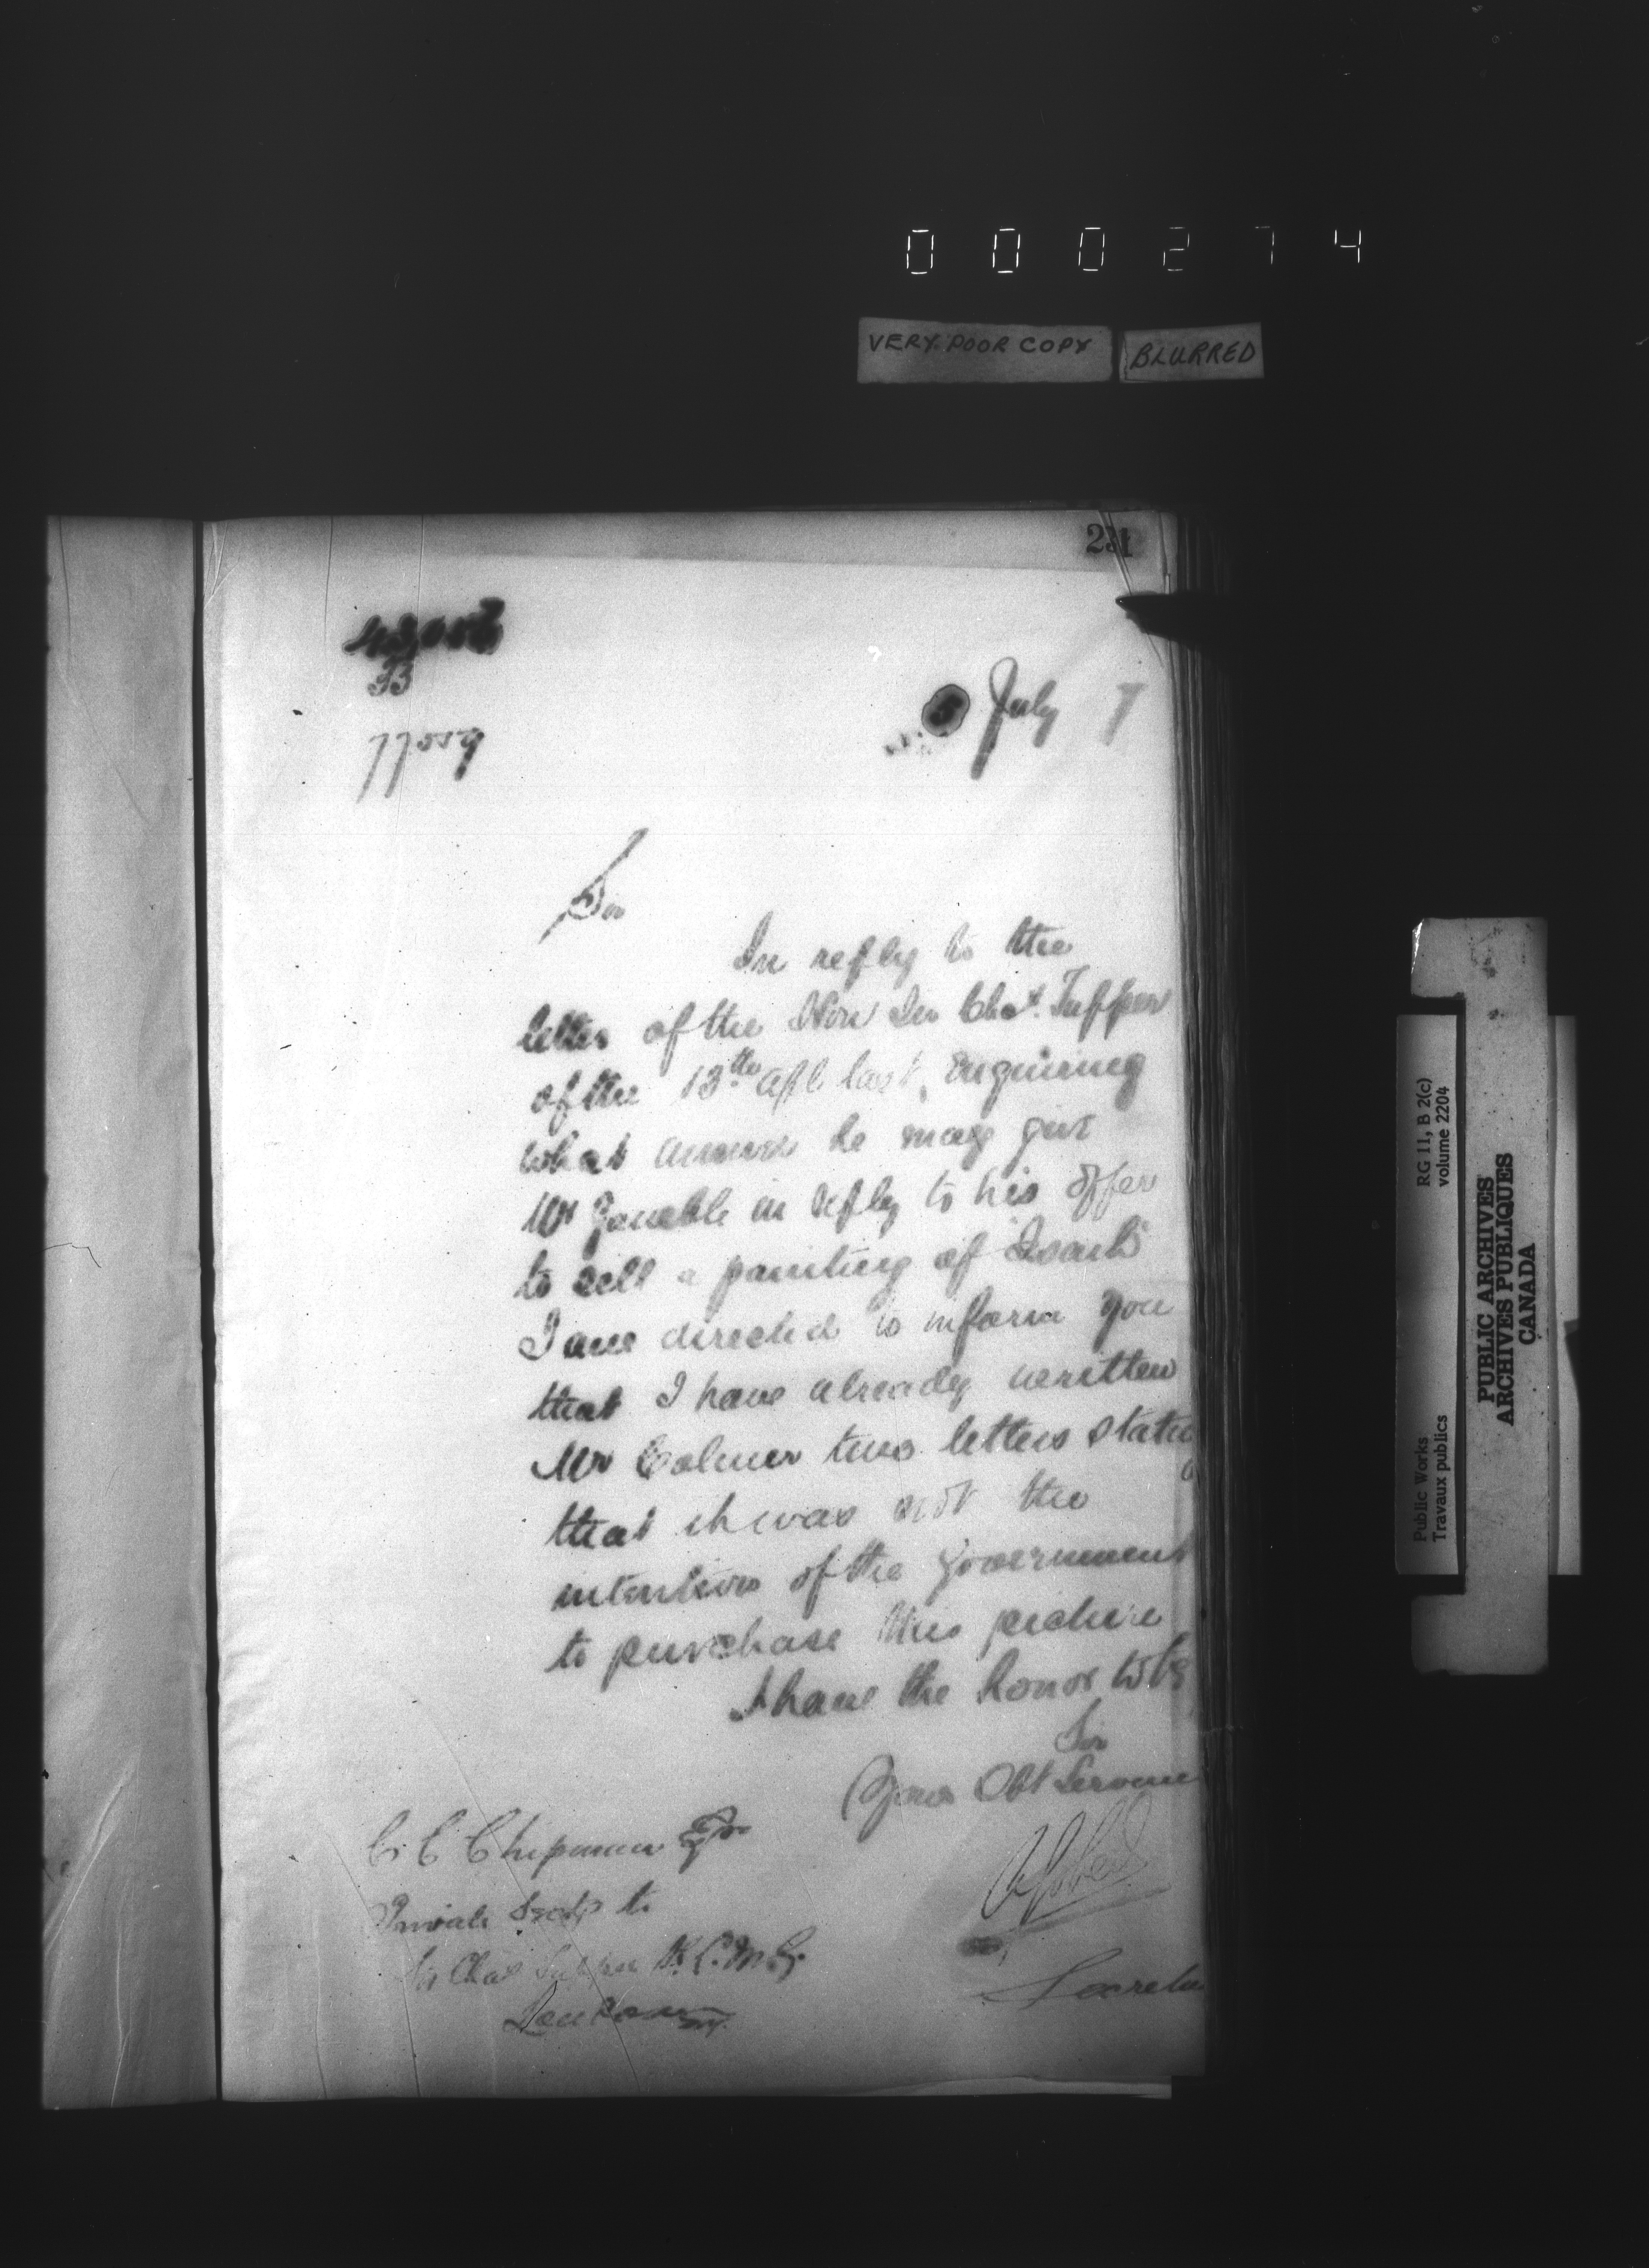 0 0 0 2 7 4
VERY POOR COPY BLURRED
231
B
77059
5 July 7
Sir
In reply to the
letter of the Hon Sir Chas. Tupper
of the 13th Apl last, enquiring
what answer he may give
Mr in reply to his offer
to sell a painting of
I am directed to inform you
that I have already written
Mr Colmer two letters statin
that it was not the
intention of the Government
to purchase this picture
I have the honor to be
Sir
Your Obt Servan
C. C. Chipman Esqr
Private Secty to
Sir Chas Tupper K.C.M.G.
London
Secreta
Public Works RG 11, B 2(c)
Travaux publics volume 2204
PUBLIC ARCHIVES
ARCHIVES PUBLIQUES
CANADA